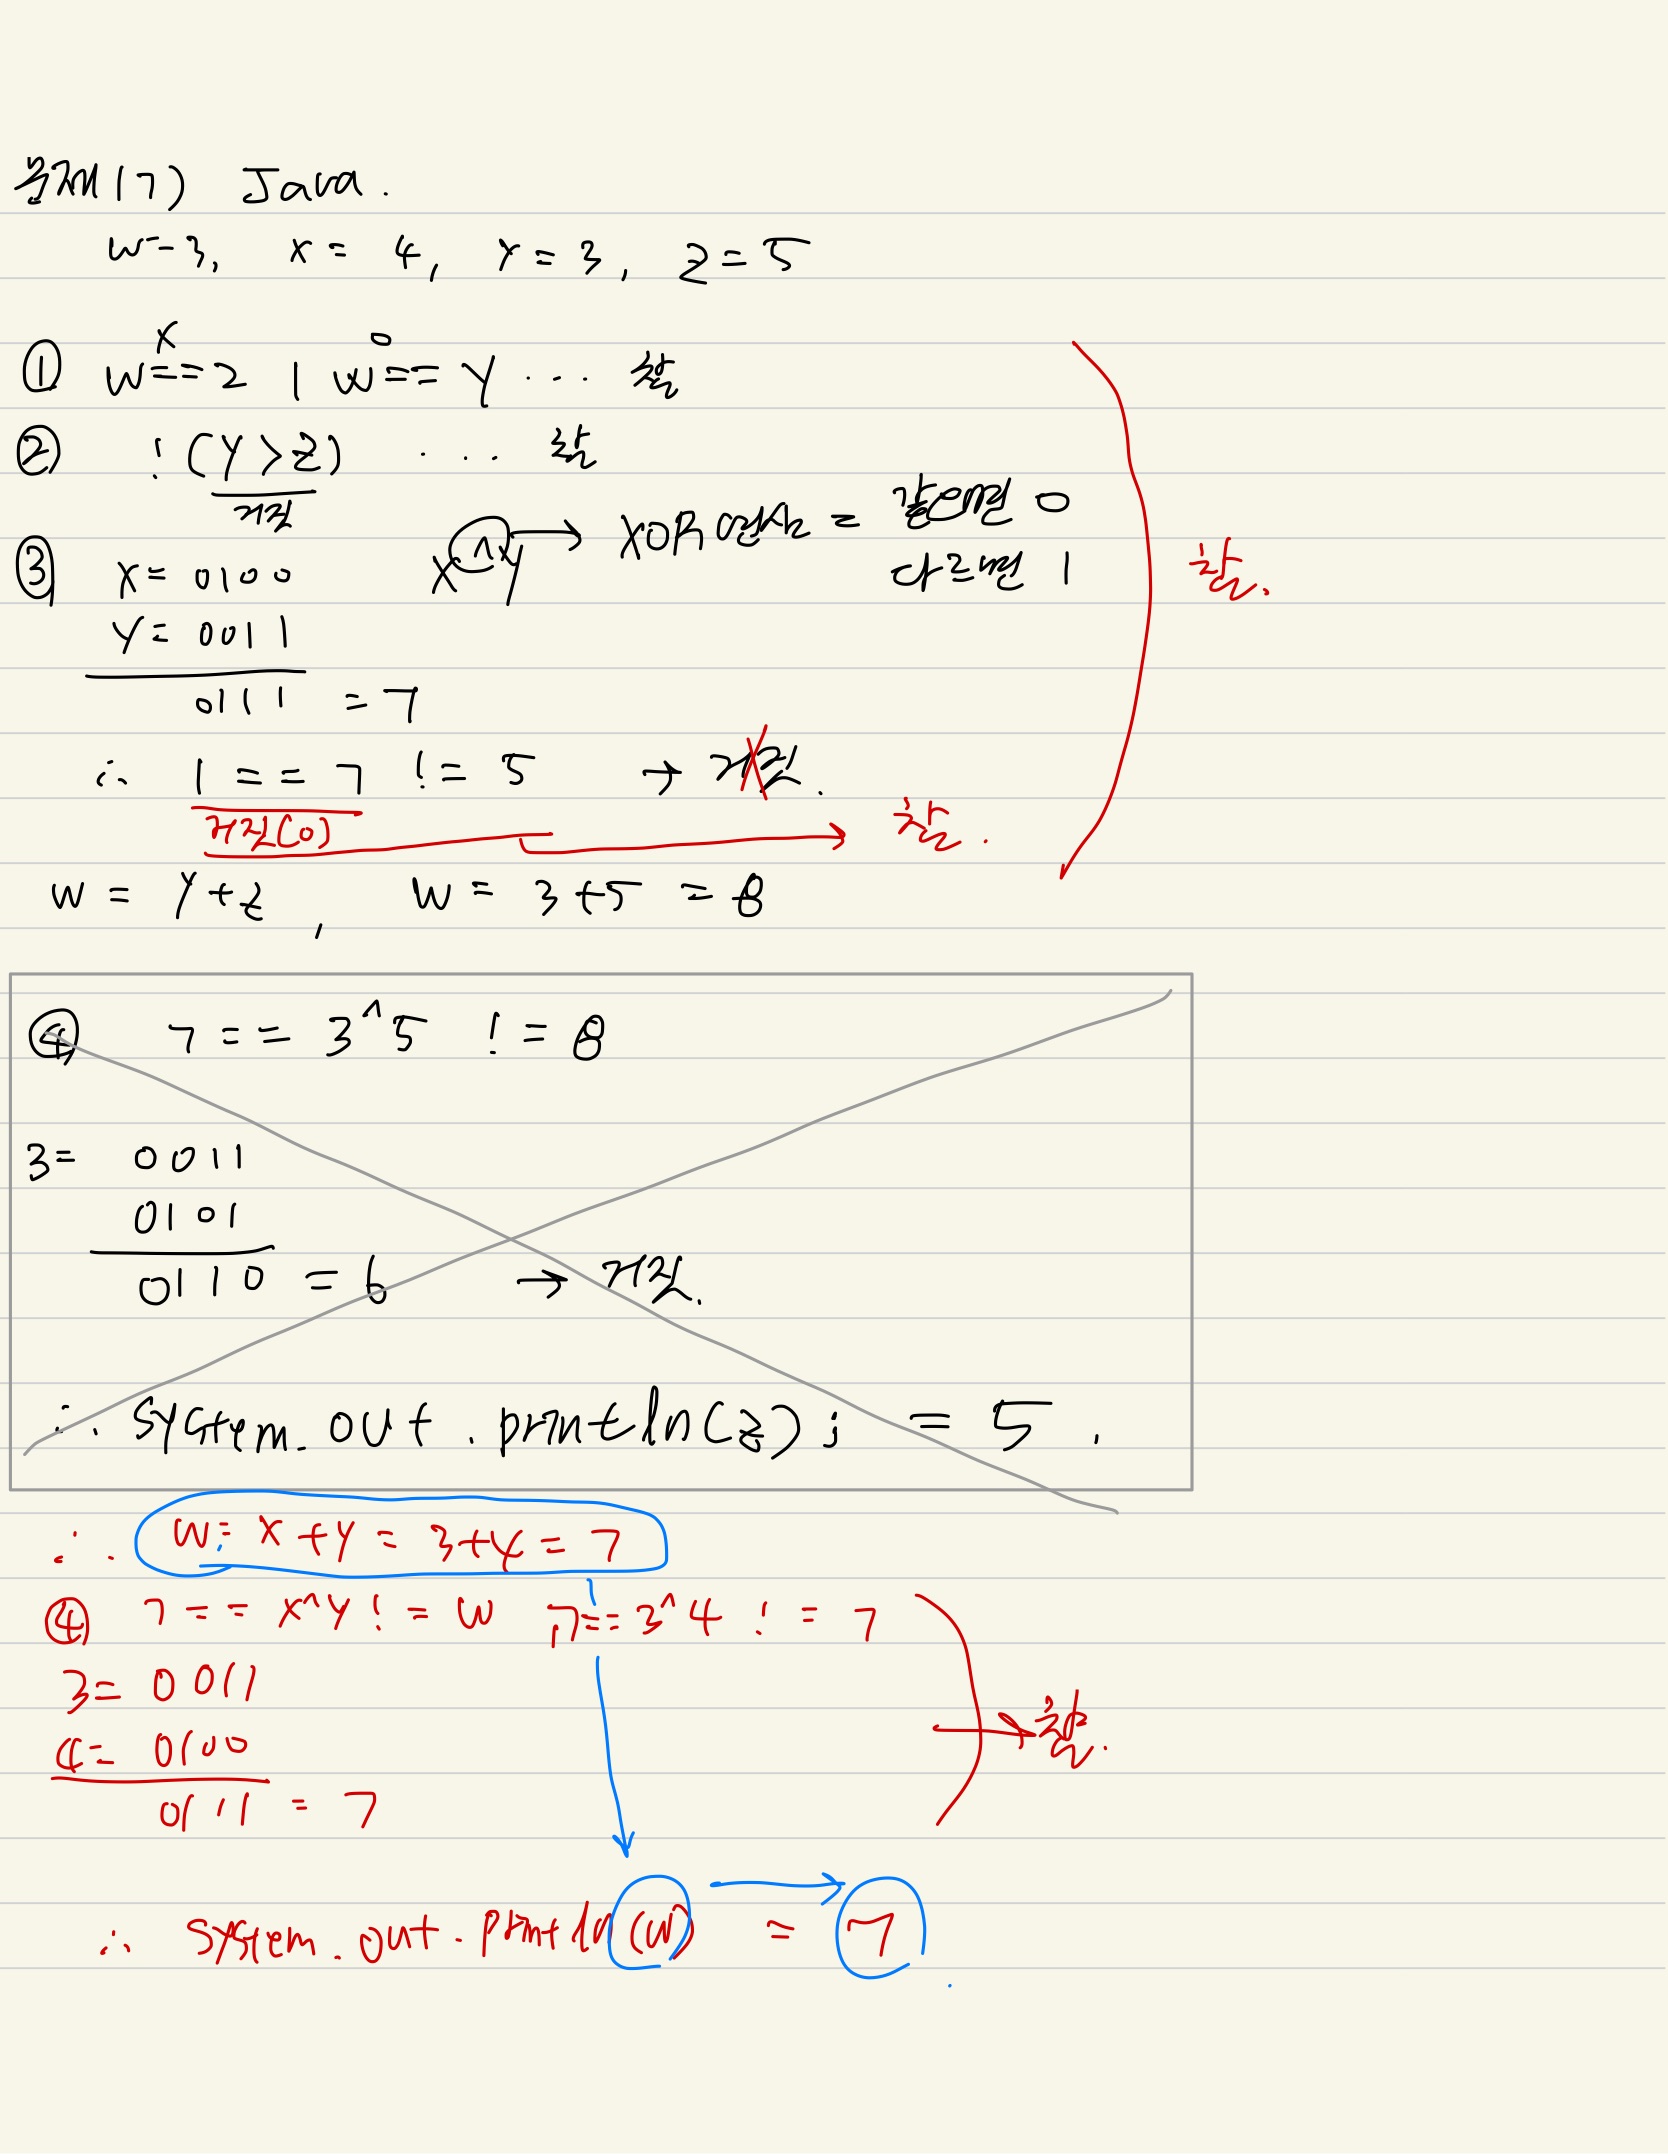 문제(7) Java.
w=3, x = 4, Y = 3, z = 5
X O
① w==2 | w== Y ... 참
② ! (Y>z) ... 참
거짓
x^y → XOR 연산 = 같으면 0
다르면 1
③ x= 0100
Y= 0011
0111 = 7
참.
∴ 1 == 7 != 5 → 거짓.
거짓(0) 참.
w = Y+z, w = 3+5 = 8
④ 7 == 3^5 != 8
3= 0011
0101
0110 = 6 → 거짓.
∴ System.out.println(z); = 5.
∴ w= x+y = 3+4 = 7
④ 7== x^y != w 7==3^4 != 7
3= 0011
4= 0100
0111 = 7
→ 참.
∴ System.out.println(w) = 7